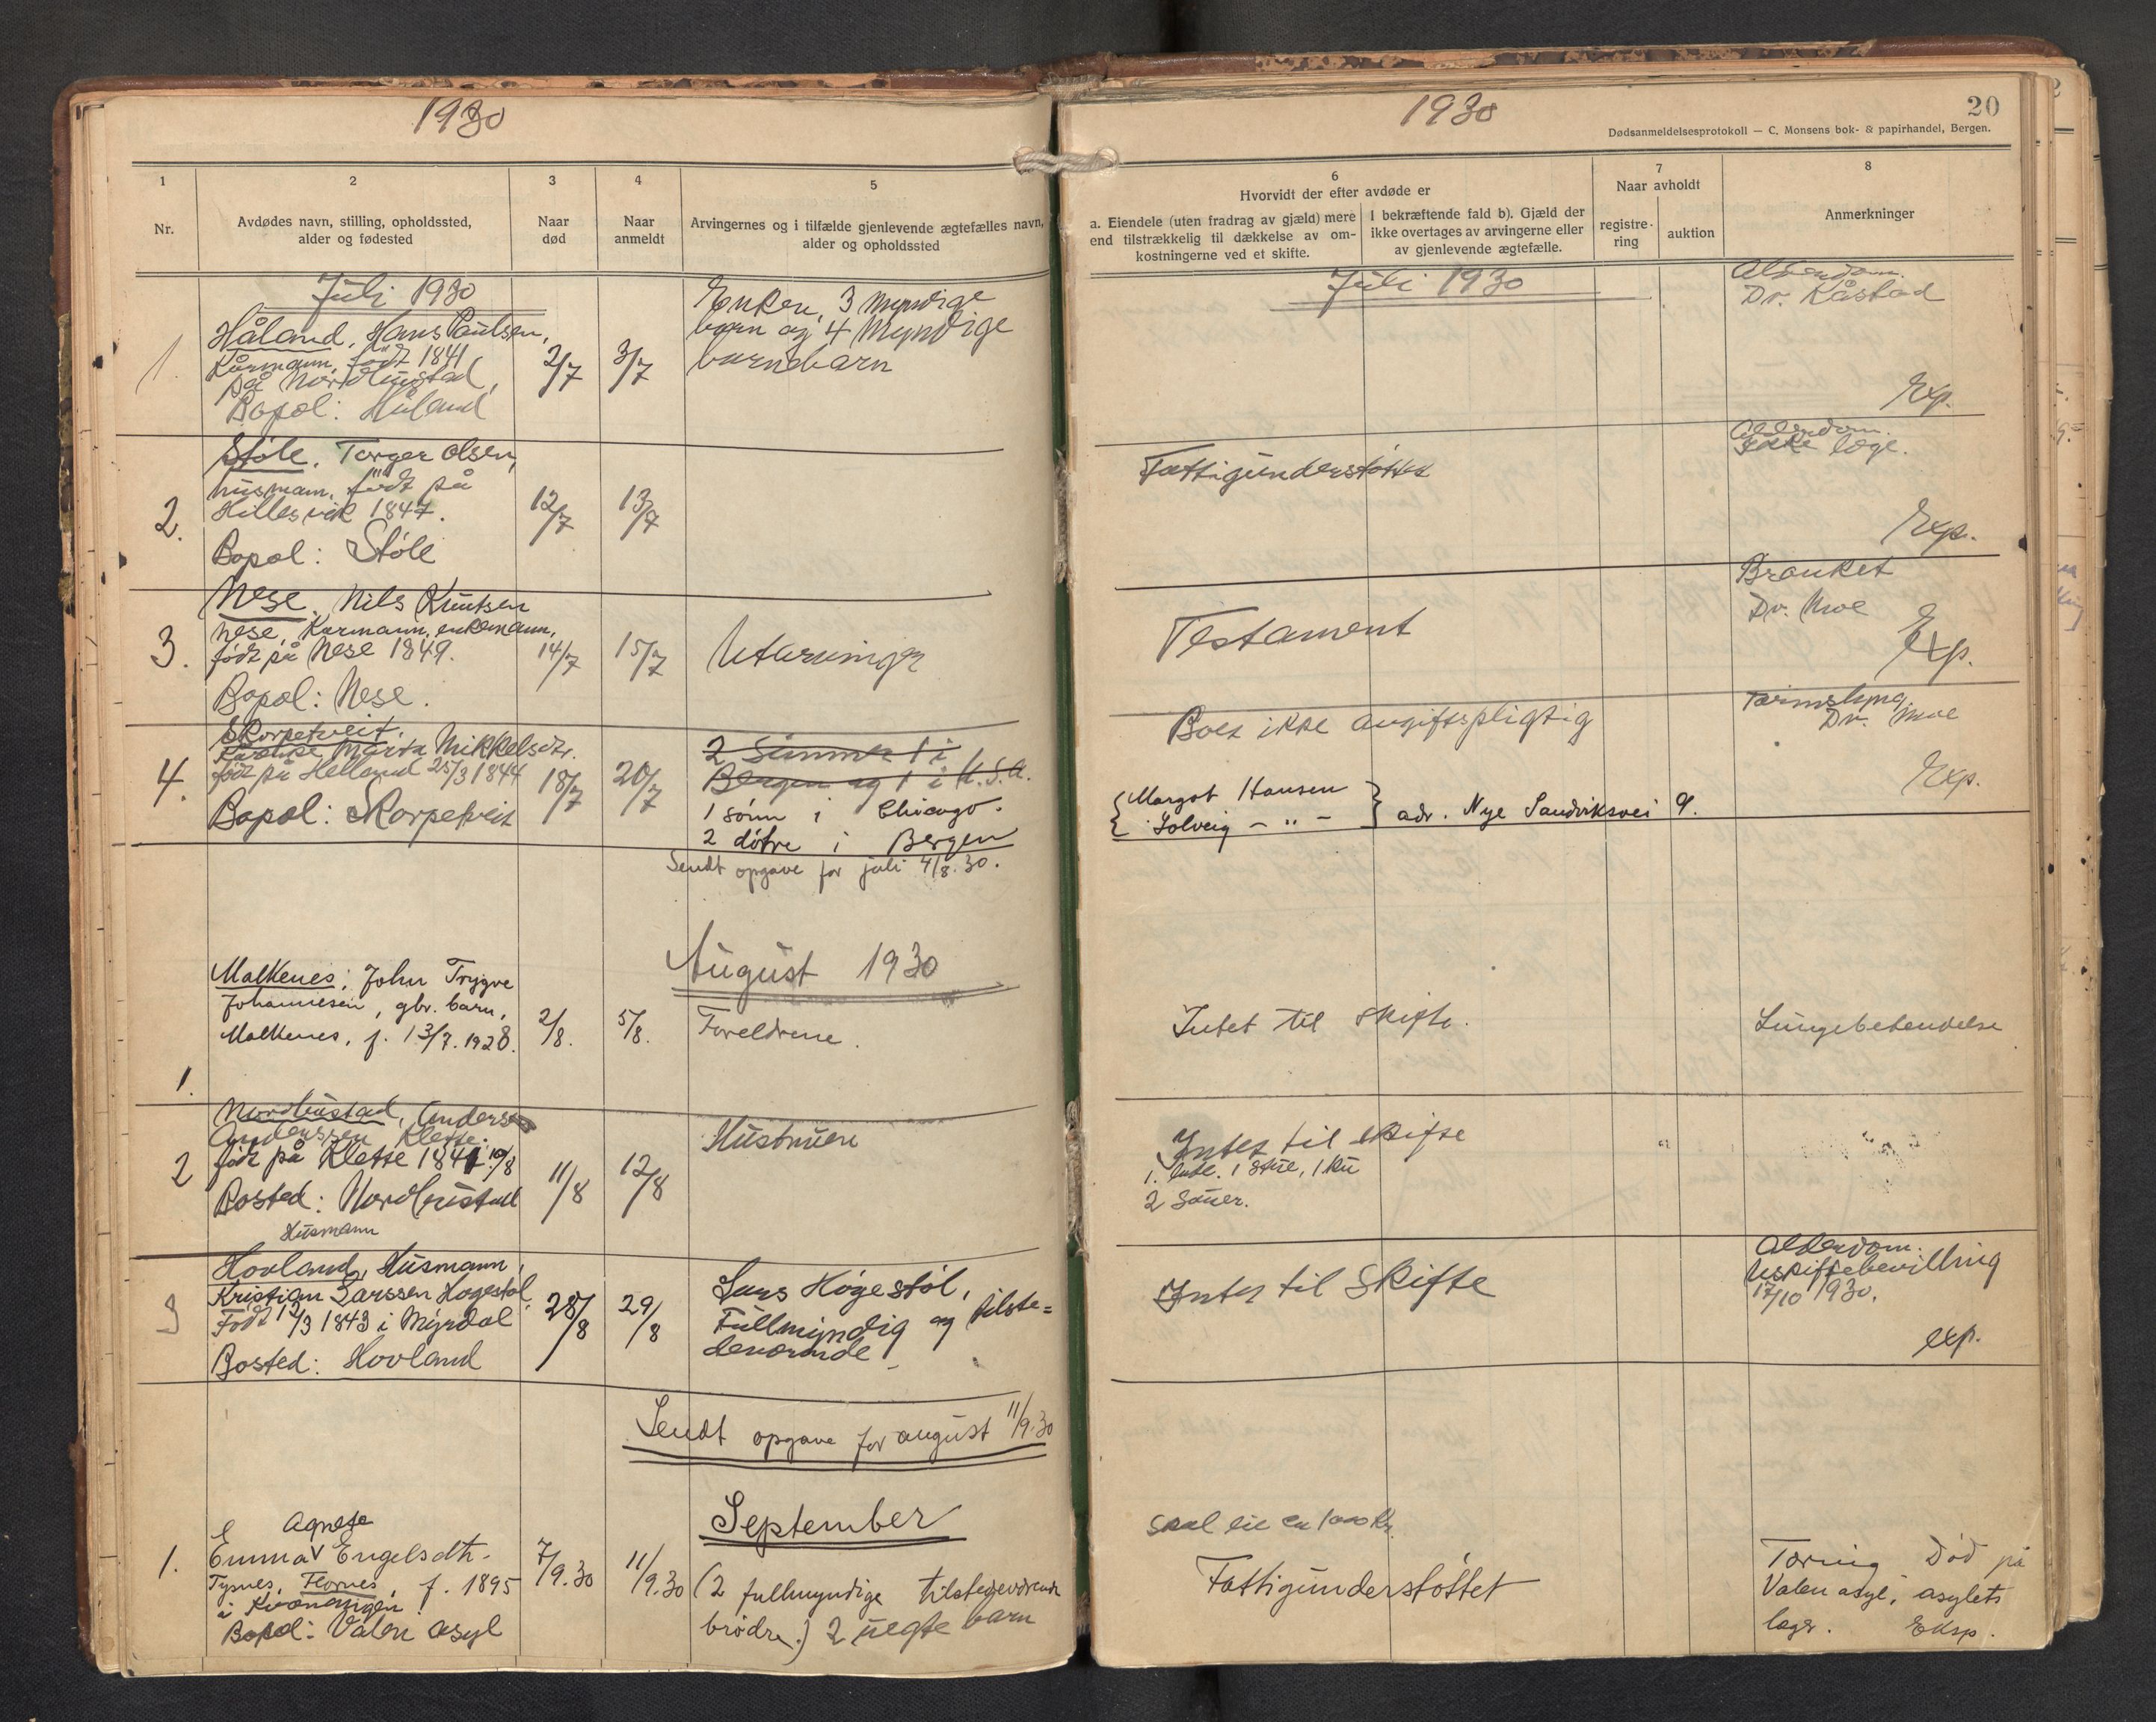 1930
1
2
3
4
5
Nr.
Avdødes navn, stilling, opholdssted,
alder og fødested
Naar
død
Naar
anmeldt
Arvingernes og i tilfælde gjenlevende ægtefælles navn,
alder og opholdssted
Juli 1930
1.
Håland, Hans Paulsen,
Kårmann, født 1841
på Nordhustad,
Bopæl: Håland
2/7
3/7
Enken, 3 myndige
barn og 4 myndige
barnebarn
2.
Støle, Torger Olsen,
husmann, født på
Hillesvik 1847.
Bopæl: Støle
12/7
13/7
3.
Nese, Nils Knutsen
Nese, Kårmann, enkemann,
født på Nese 1849.
Bopæl: Nese.
14/7
15/7
Utarvinger
4.
Skorpetveit,
Marta Mikkelsdtr.
født på Helland 25/3 1844
Bopæl: Skorpetveit
18/7
20/7
2 Sønner 1 i
Bergen og 1 i U.S.A.
1 sønn i Chicago.
2 døtre i Bergen
Sendt opgave for juli 4/8.30.
August 1930
1.
Malkenes, John Trygve
Johannesen, gbr. barn,
Malkenes, f. 13/7.1928.
2/8.
5/8.
Foreldrene.
2
Nordhustad, Anders
Anderssen Klette.
født på Klette 1841 10/8
Bosted: Nordhustad
Husmann
11/8
12/8
Hustruen
3
Hovland, Husmann,
Kristian Larssen Høgestøl
Født 12/3 1843 i Myrdal
Bosted: Hovland
28/8
29/8
Lars Høgestøl,
Fullmyndig og tilste=
deværende
Sendt opgave for august 11/9.30
September
1.
Agnete
Emma Engelsdtr.
Tysnes, Flornes, f. 1895
i Kvænangen
Bopæl: Valen asyl
7/9.30
11/9.30
(2 fullmyndige tilstedeværende
brødre.) 2 uegte barn
1930
20
Dødsanmeldelsesprotokoll — C. Monsens bok- & papirhandel, Bergen.
6
Hvorvidt der efter avdøde er
a. Eiendele (uten fradrag av gjæld) mere
end tilstrækkelig til dækkelse av om-
kostningerne ved et skifte.
I bekræftende fald b). Gjæld der
ikke overtages av arvingerne eller
av gjenlevende ægtefælle.
7
Naar avholdt
registre-
ring
auktion
8
Anmerkninger
Juli 1930
Alderdom.
Dr. Kåstad
Exp.
Fattigunderstøttet
Alderdom.
Ikke læge.
Exp.
Testament
Bronket
Dr. Moe
Exp.
Boet ikke avgiftspligtig
Tarmslyng
Dr. Moe
Exp.
Margot Hansen
Solveig – " –
adr. Nye Sandviksvei 9.
Intet til skifte.
Lungebetendelse
Intet til skifte
1 stue, 1 ku
2 Sauer.
Intet til Skifte
Alderdom.
Uskiftebevilling
17/10 1930.
exp.
Skal eie ca 1000 Kr.
Fattigunderstøttet
Tæring Død på
Valen asyl, asylets
læge. Eksp.